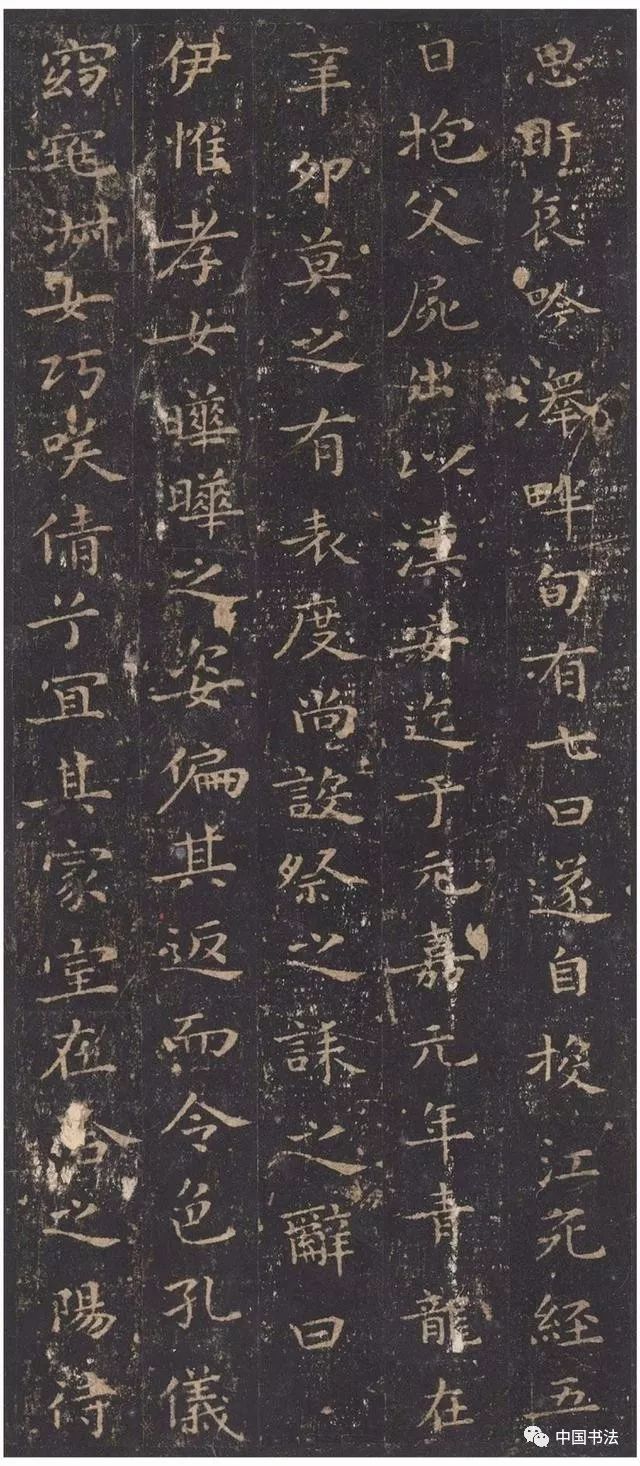 思盱哀吟澤畔旬有七日遂自投江死經五
日抱父屍出以漢安迄于元嘉元年青龍在
辛卯莫之有表度尚設祭之誄之辭曰
伊惟孝女曄曄之姿偏其返而令色孔儀
窈窕淑女巧咲倩兮宜其家室在洽之陽待
中国书法